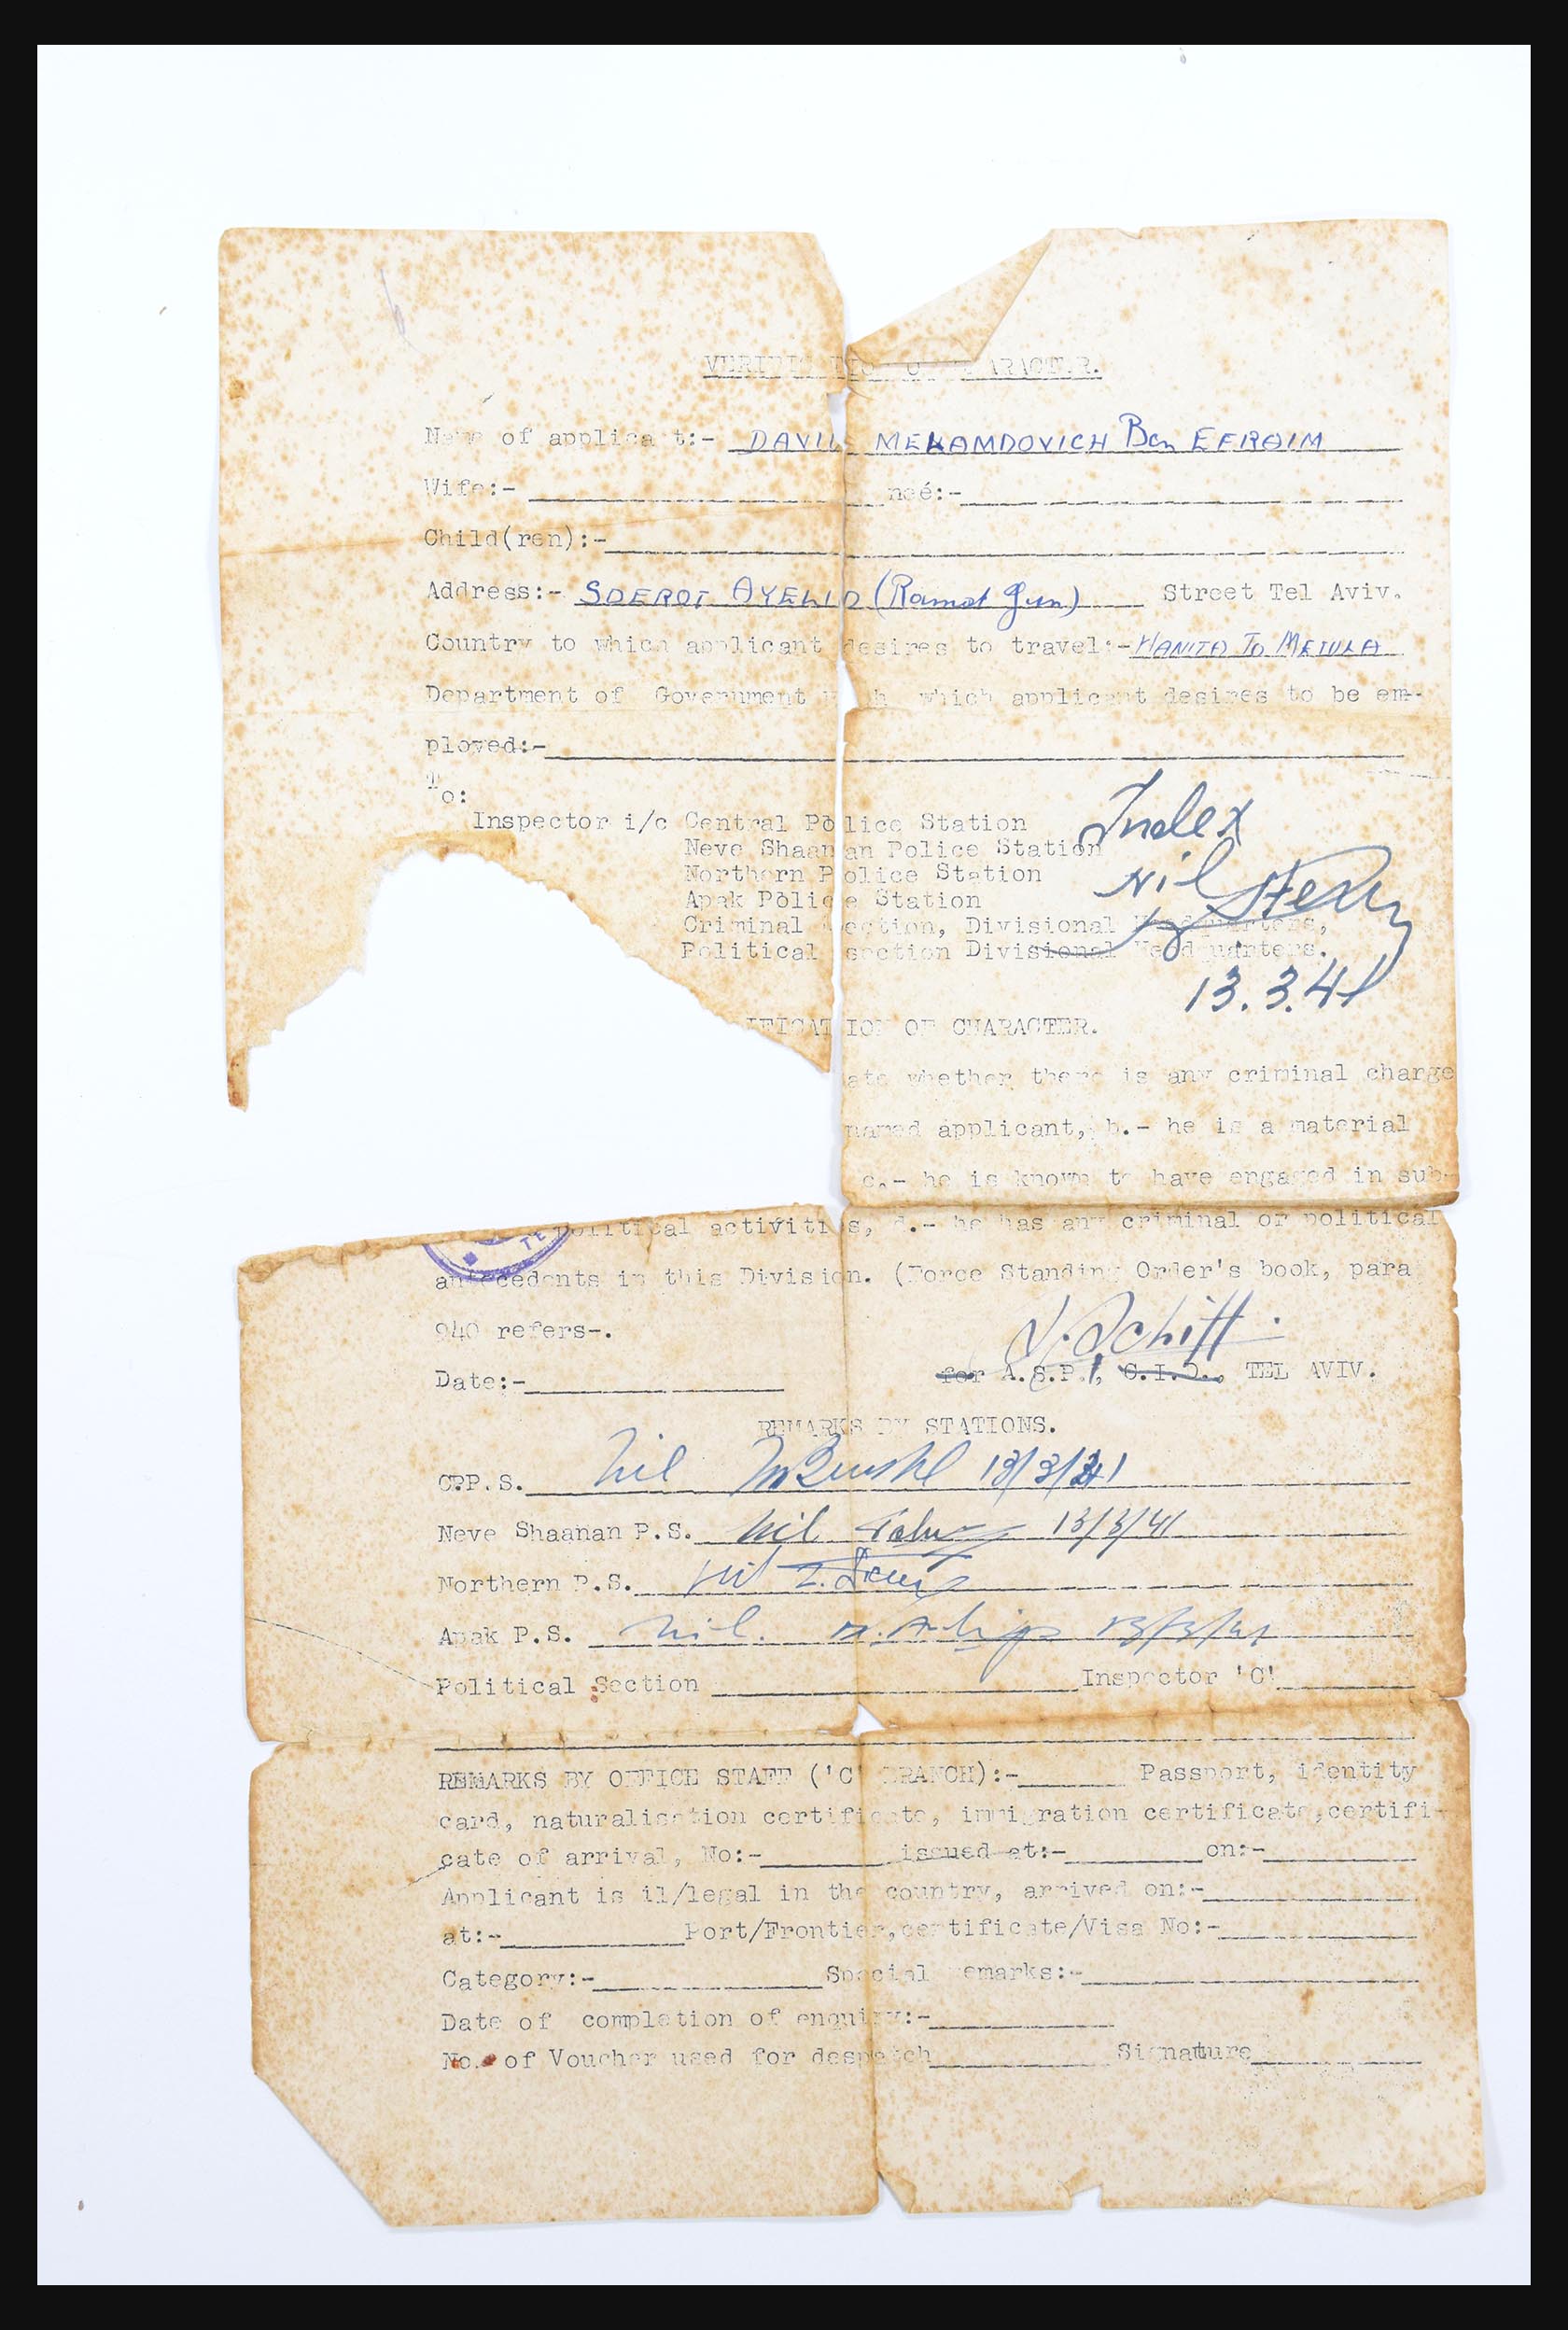 VERIFICATION OF CHARACTER.
Name of applicant:- DAVID MEHAMDOVICH Ben EFRAIM
Wife:- neé:-
Child(ren):-
Address:- SDEROT AYELID (Ramat Gan) Street Tel Aviv.
Country to which applicant desires to travel:- HANITA TO METULA
Department of Government which applicant desires to be em-
ployed:-
To:
Index
Inspector i/c Central Police Station
Neve Shaanan Police Station
Nil
Northern Police Station
Apak Police Station
Criminal Section, Divisional Headquarters,
Political section Divisional Headquarters.
13.3.41
IFICATION OF CHARACTER.
ate whether there is any criminal charge
named applicant, b.- he is a material
c.- he is known to have engaged in sub-
political activities, d.- he has any criminal or political
TE
antecedents in this Division. (Force Standing Order's book, para
940 refers-.
J. Schiff.
Date:- for A.S.P., C.I.D., TEL AVIV.
REMARKS BY STATIONS.
C.P.S. Nil 13/3/41
Neve Shaanan P.S. Nil 13/3/41
Northern P.S. Nil
Apak P.S. Nil. 13/3/41
Political Section Inspector 'C'
REMARKS BY OFFICE STAFF ('C' BRANCH):- Passport, identity
card, naturalisation certificate, immigration certificate, certifi-
cate of arrival, No:- issued at:- on:-
Applicant is il/legal in the country, arrived on:-
at:- Port/Frontier, certificate/Visa No:-
Category:- Special remarks:-
Date of completion of enquiry:-
No. of Voucher used for despatch Signature